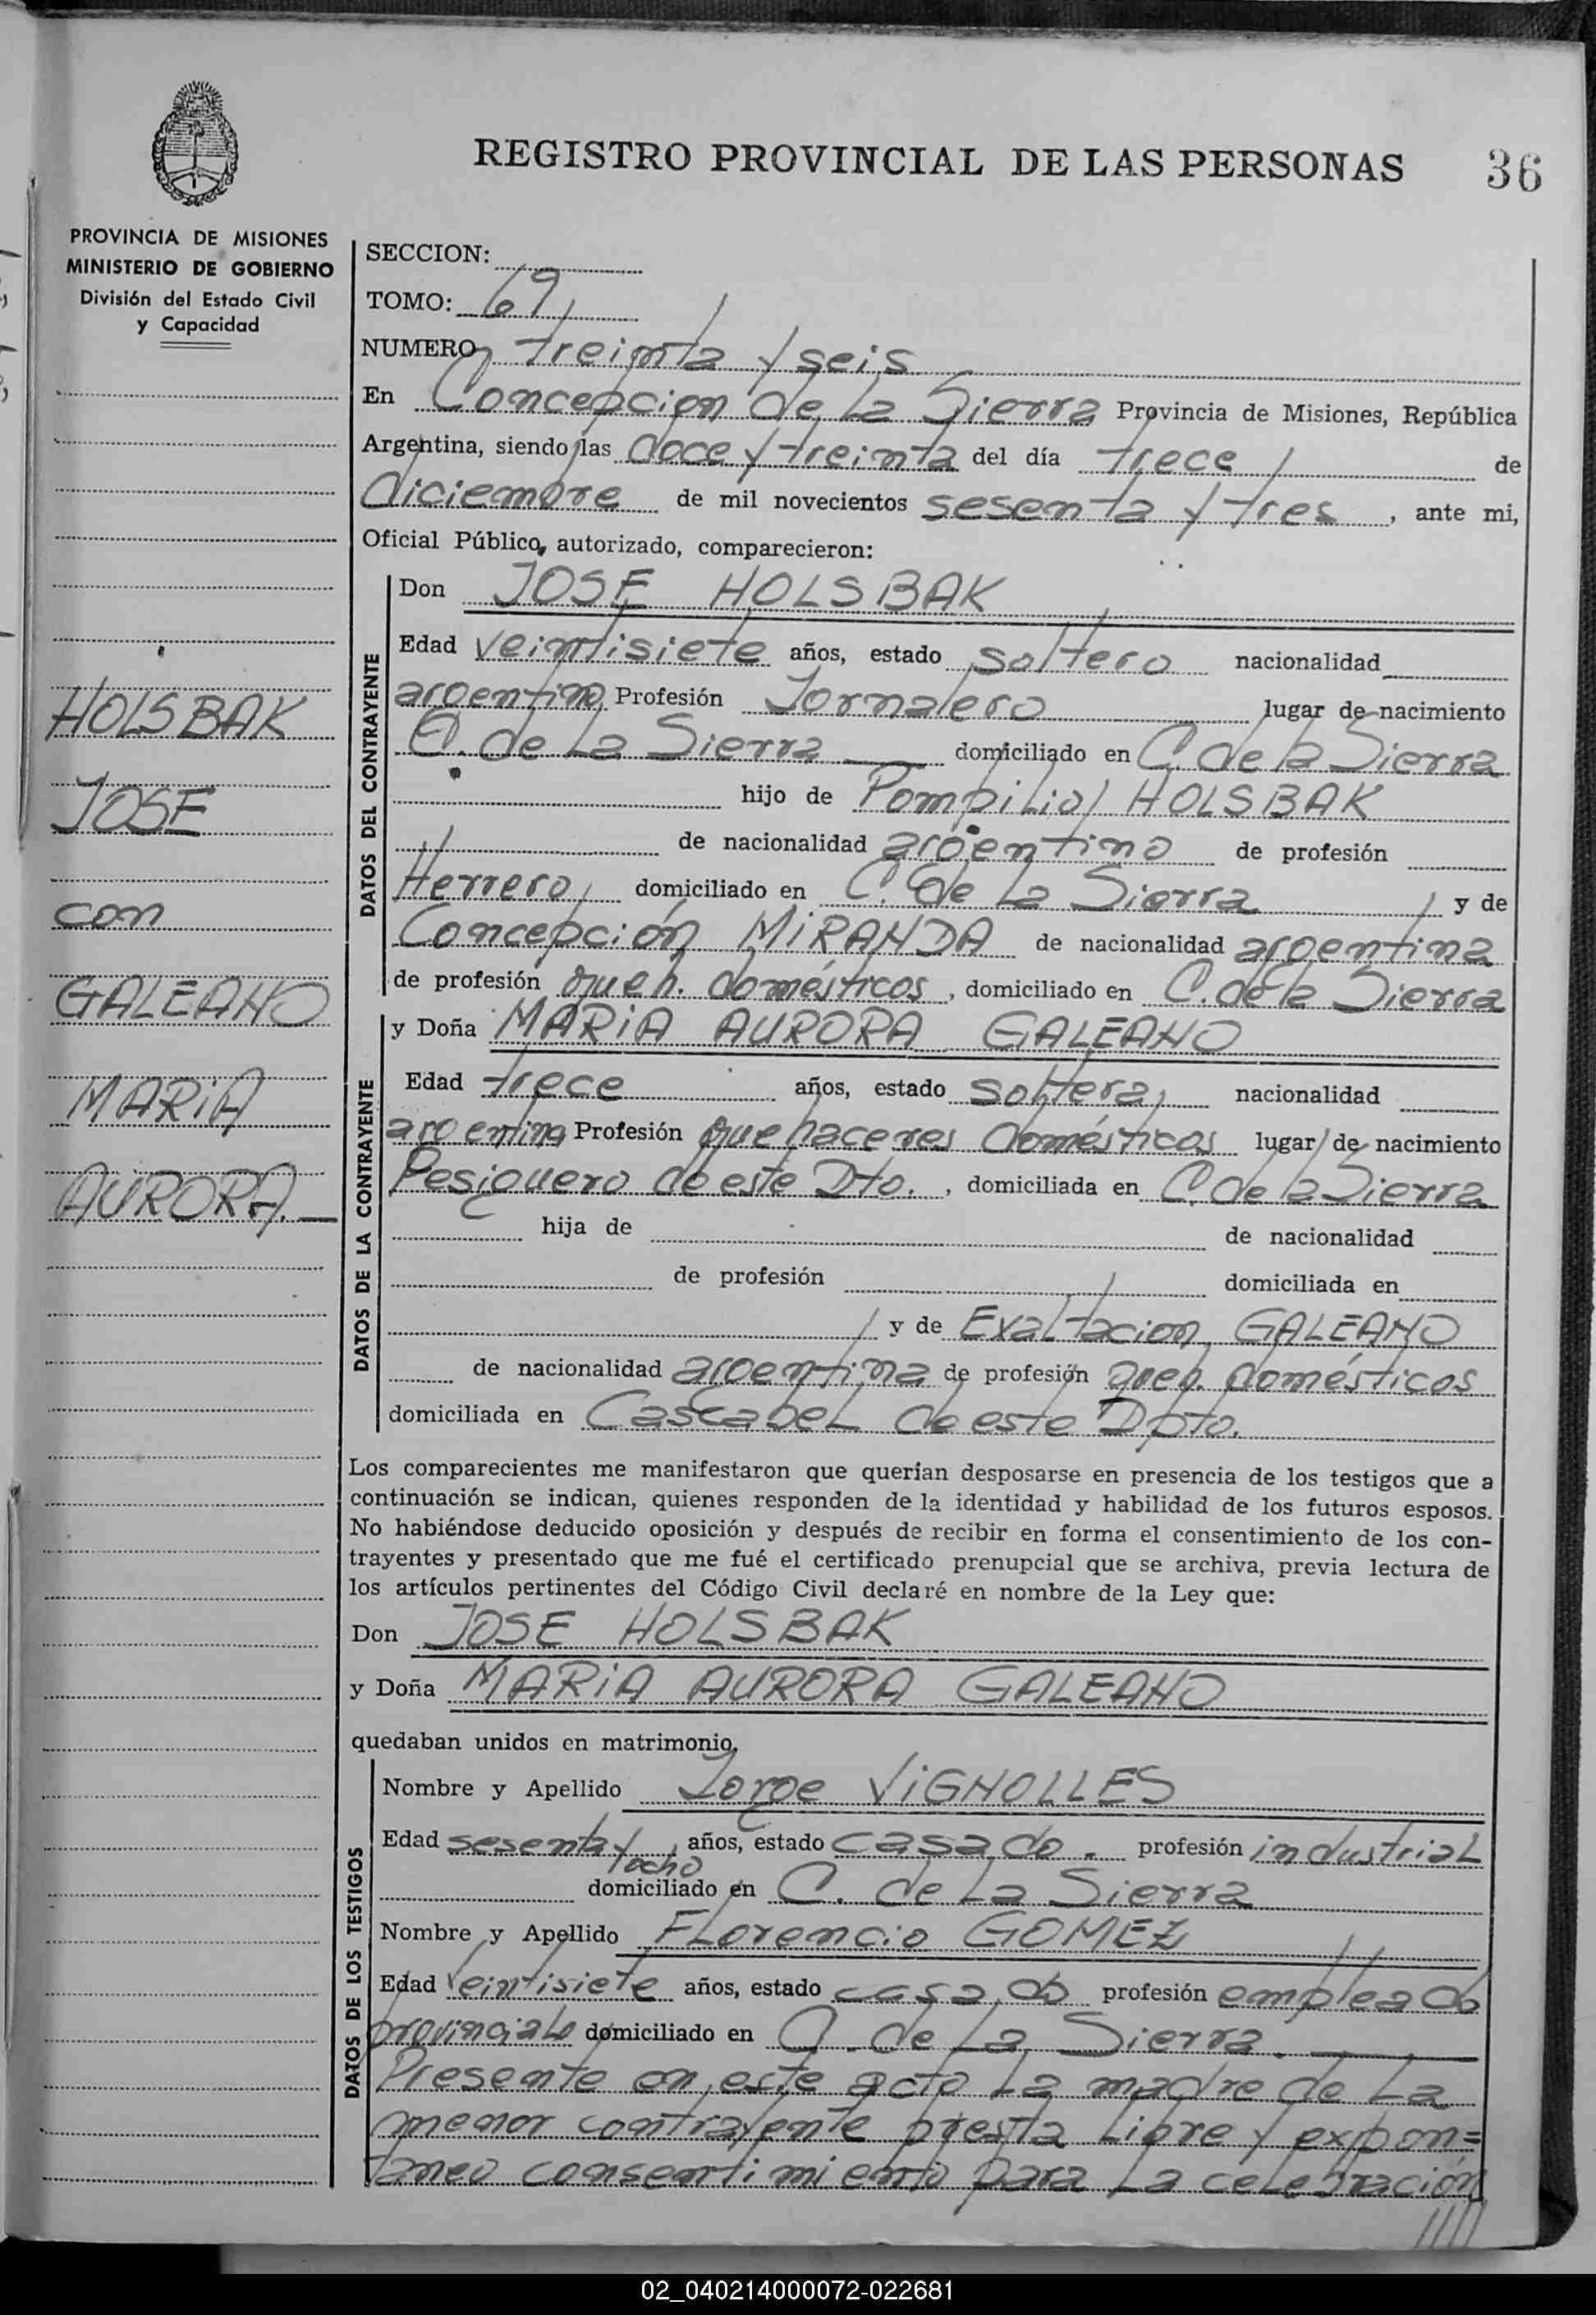 REGISTRO PROVINCIAL DE LAS PERSONAS 36
PROVINCIA DE MISIONES
MINISTERIO DE GOBIERNO
División del Estado Civil
y Capacidad
HOLSBAK
JOSE
con
GALEANO
MARIA
AURORA.—
SECCION:
TOMO: 69,
NUMERO, treinta y seis
En Concepcion de La Sierra Provincia de Misiones, República
Argentina, siendo las doce y treinta del día trece de
diciembre de mil novecientos sesenta y tres, ante mi,
Oficial Público, autorizado, comparecieron:
DATOS DEL CONTRAYENTE
Don JOSE HOLSBAK
Edad veintisiete años, estado soltero nacionalidad
argentino, Profesión Jornalero lugar de nacimiento
C. de La Sierra domiciliado en C. de la Sierra
hijo de Pompilio HOLSBAK
de nacionalidad argentino de profesión
Herrero, domiciliado en C. de La Sierra y de
Concepción MIRANDA de nacionalidad argentina
de profesión queh. domésticos, domiciliado en C. de la Sierra
DATOS DE LA CONTRAYENTE
y Doña MARIA AURORA GALEANO
Edad trece años, estado soltera, nacionalidad
argentina Profesión quehaceres domésticos lugar de nacimiento
Pesiguero de este Dto., domiciliada en C. de la Sierra
hija de de nacionalidad
de profesión domiciliada en
y de Exaltacion GALEANO
de nacionalidad argentina de profesión queh. domésticos
domiciliada en Cascabel de este Dpto.
Los comparecientes me manifestaron que querían desposarse en presencia de los testigos que a
continuación se indican, quienes responden de la identidad y habilidad de los futuros esposos.
No habiéndose deducido oposición y después de recibir en forma el consentimiento de los con-
trayentes y presentado que me fué el certificado prenupcial que se archiva, previa lectura de
los artículos pertinentes del Código Civil declaré en nombre de la Ley que:
Don JOSE HOLSBAK
y Doña MARIA AURORA GALEANO
quedaban unidos en matrimonio.
DATOS DE LOS TESTIGOS
Nombre y Apellido Jorge VIGNOLLES
Edad sesenta y ocho, años, estado casado. profesión industrial
domiciliado en C. de La Sierra
Nombre y Apellido Florencio GOMEZ
Edad veintisiete años, estado casado profesión empleado
provincial domiciliado en C. de La Sierra.
Presente en este acto La madre de La
menor contrayente presta Libre y expon=
taneo consentimiento para La celebración
////
02_040214000072-022681